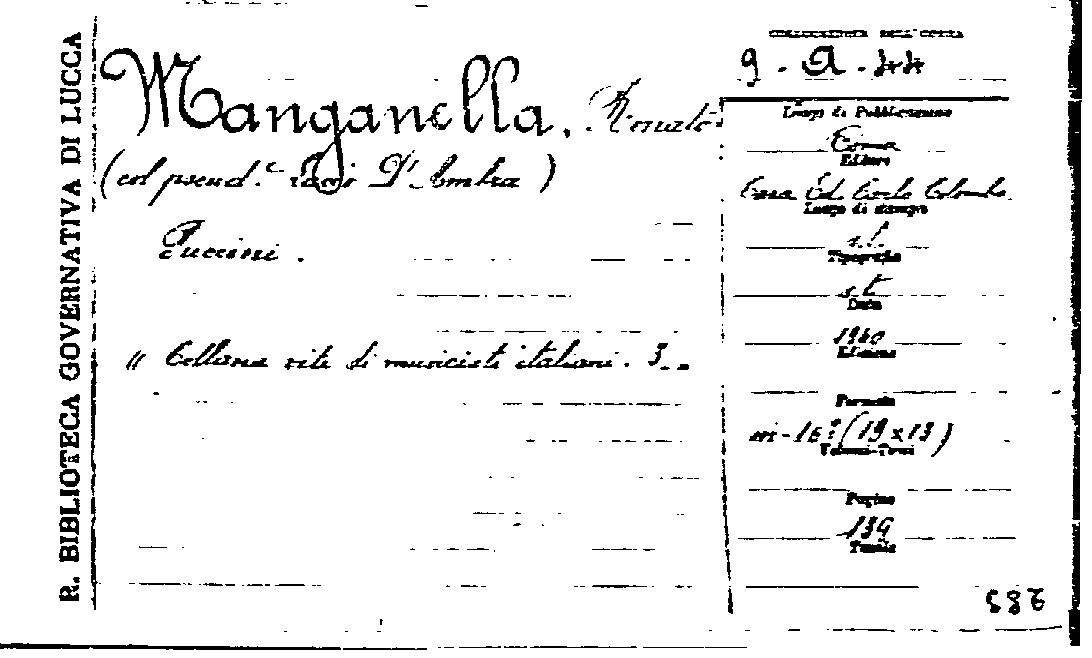 R. BIBLIOTECA GOVERNATIVA DI LUCCA
Manganella, Renato
(col pseud.º D'Ambra)
Puccini.
" Collana vite di musicisti italiani. 3.
COLLOCAZIONE DELL'OPERA
9. A. 44
Luogo di Pubblicazione
Roma
Editore
Casa Ed. Carlo Colombo
Luogo di stampa
s.l.
Tipografia
s.t.
Data
1940
Edizione
Formato
in-16º (19x13)
Volumi-Tomi
Pagine
139
Tavole